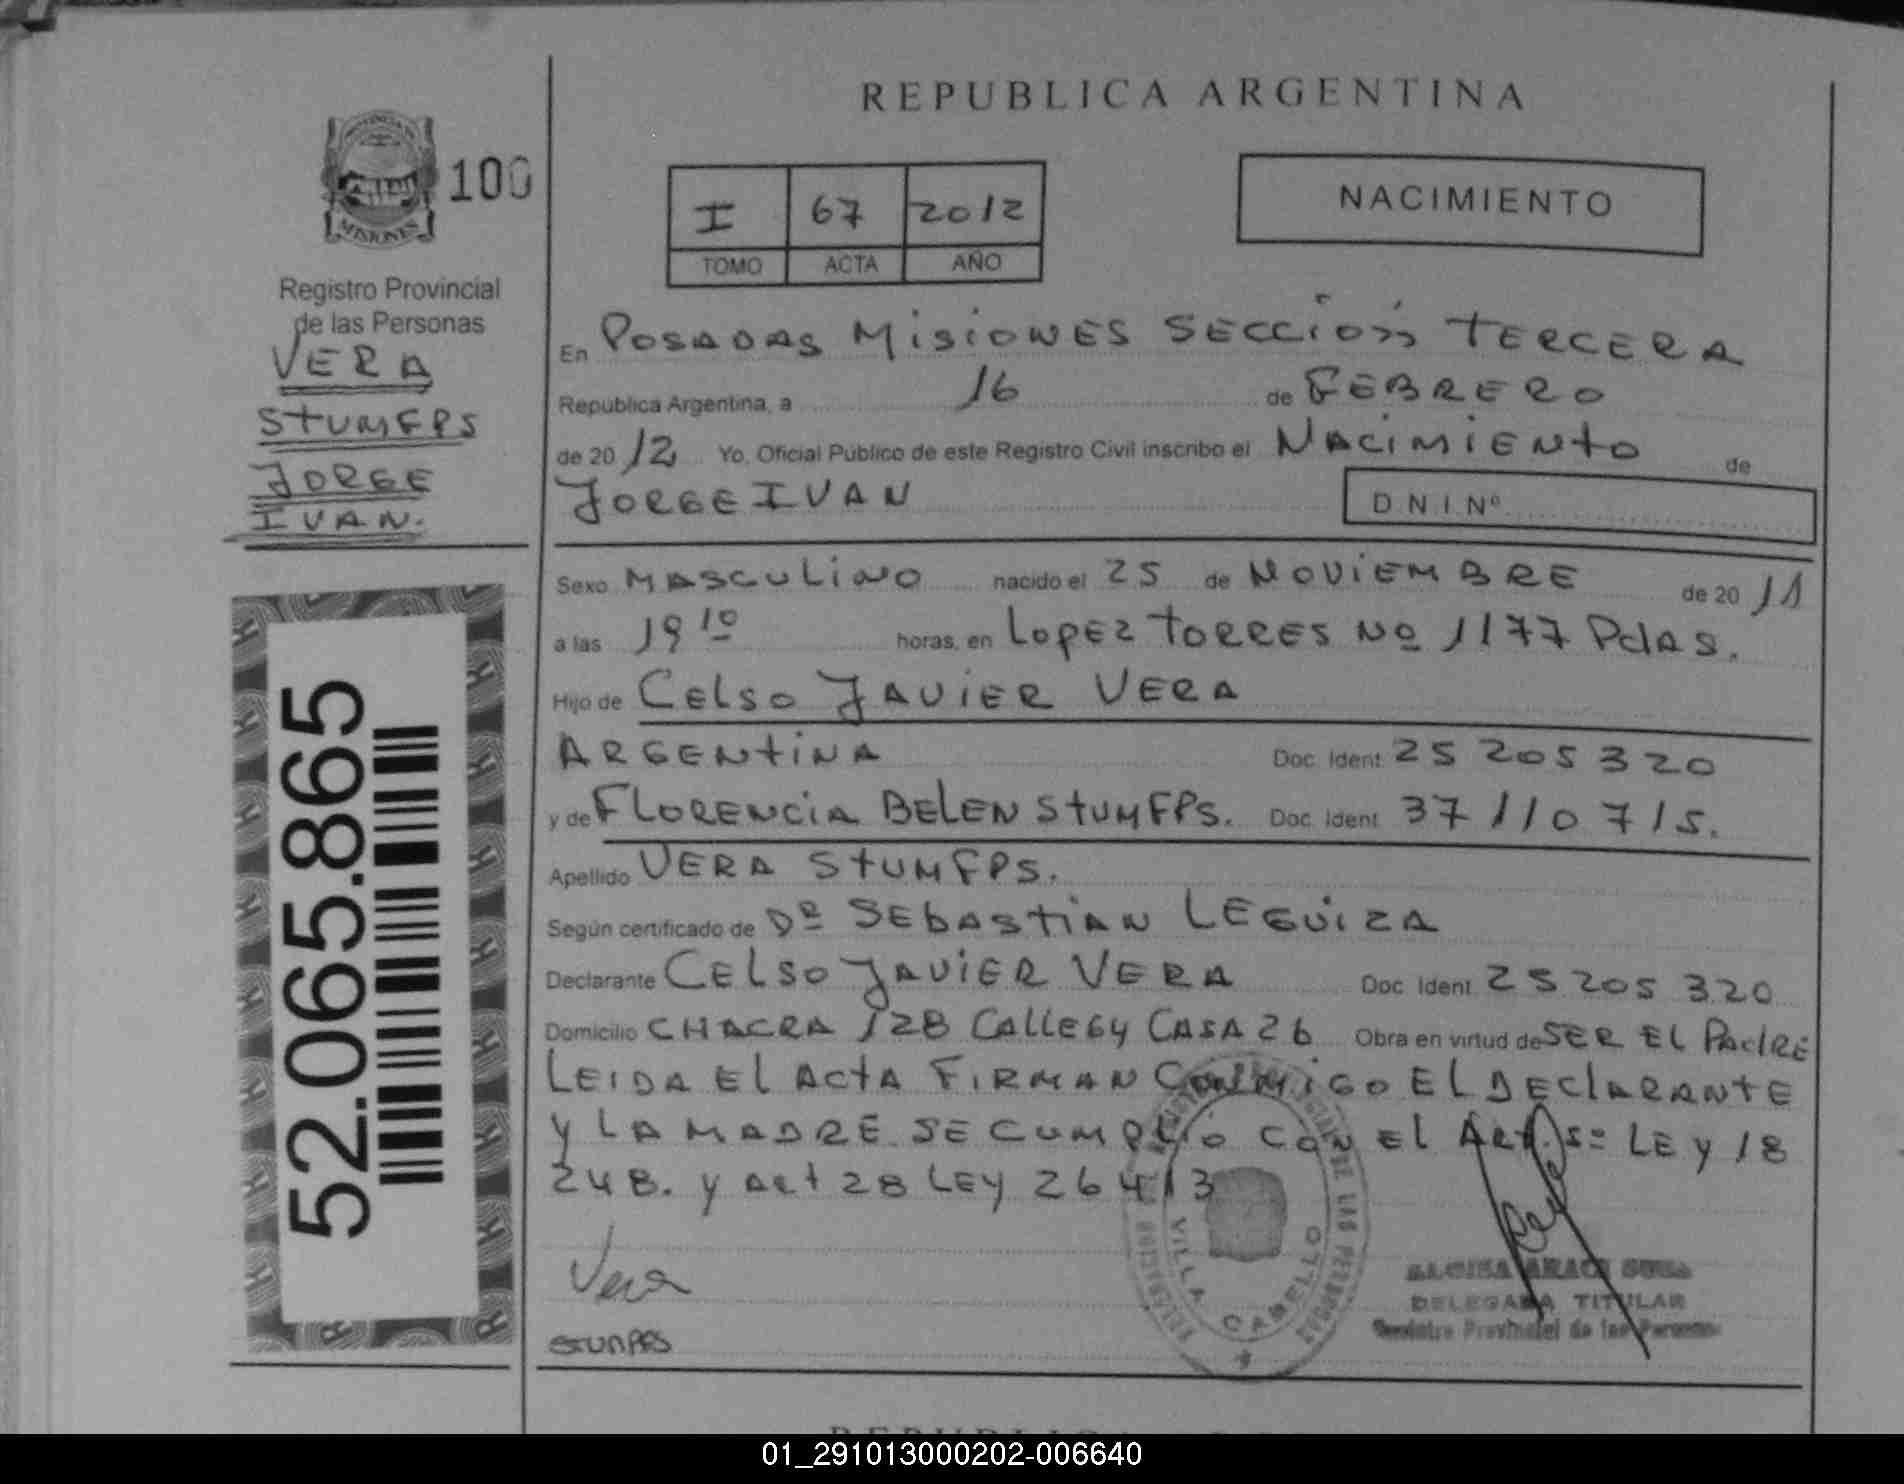 REPUBLICA ARGENTINA
PROVINCIA DE
MISIONES
100
Registro Provincial
de las Personas
VERA
STUMFPS
JORGE
IVAN.
52.065.865
I 67 2012
TOMO ACTA AÑO
NACIMIENTO
En POSADAS MISIONES SECCIÓN TERCERA
República Argentina, a 16 de FEBRERO
de 2012 Yo, Oficial Público de este Registro Civil inscribo el NACIMIENTO de
JORGE IVAN D N I Nº
Sexo MASCULINO nacido el 25 de NOVIEMBRE de 2011
a las 19 10 horas, en LOPEZ TORRES Nº 1177 Pdas.
Hijo de CELSO JAVIER VERA
ARGENTINA Doc. Ident. 25 205 320
y de FLORENCIA BELEN STUMFPS. Doc. Ident. 37 110 715.
Apellido VERA STUMFPS.
Según certificado de DR SEBASTIAN LEGUIZA
Declarante CELSO JAVIER VERA Doc. Ident. 25 205 320
Domicilio CHACRA 128 CALLE 64 CASA 26 Obra en virtud de SER EL PADRE
LEIDA EL ACTA FIRMAN CONMIGO EL DECLARANTE
Y LA MADRE SE CUMPLIÓ CON EL ART. 5º LEY 18
248. Y ART 28 LEY 26413
Vera
STUMFPS
DE LAS PERSONAS
VILLA CABELLO
DELEGADA TITULAR
Registro Provincial de las Personas
01_291013000202-006640